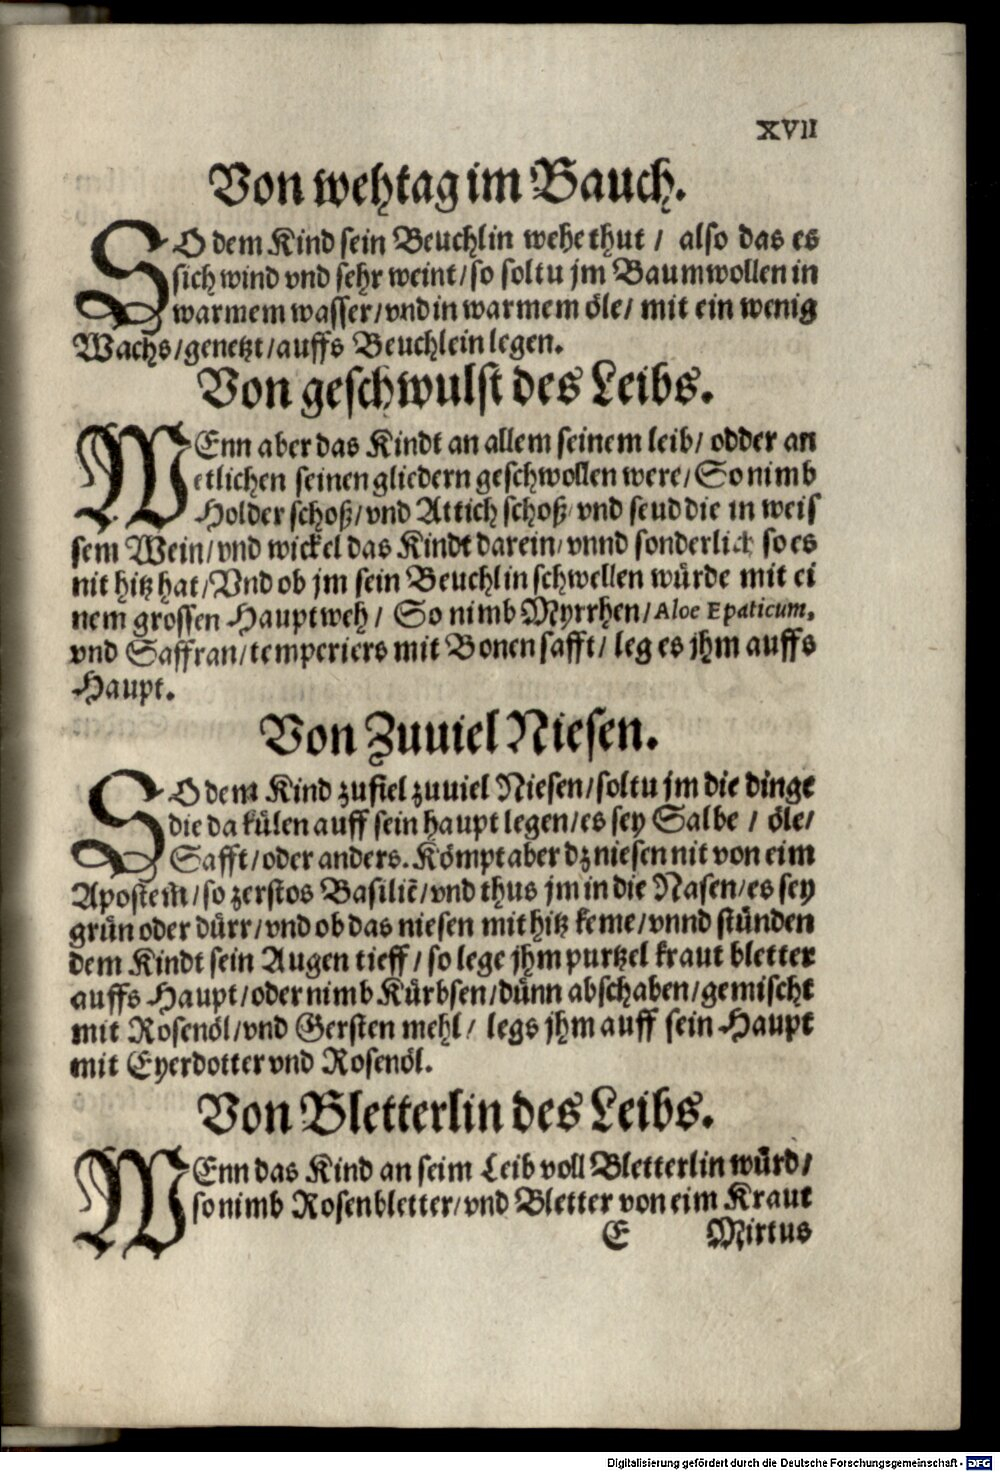 XVII
Von wehtag im Bauch.
SO dem Kind sein Beuchlin wehe thut / also das es
sich wind vnd sehr weint / so soltu jm Baumwollen in
warmem wasser / vnd in warmem öle / mit ein wenig
Wachs / genetzt / auffs Beuchlein legen.
Von geschwulst des Leibs.
WEnn aber das Kindt an allem seinem leib / odder an
etlichen seinen gliedern geschwollen were / So nimb
Holder schoß / vnd Attich schoß / vnd seud die in weis
sem Wein / vnd wickel das Kindt darein / vnnd sonderlich so es
nit hitz hat / Vnd ob jm sein Beuchlin schwellen würde mit ei
nem grossen Hauptweh / So nimb Myrrhen / Aloe Epaticum,
vnd Saffran / temperiers mit Bonen safft / leg es jhm auffs
Haupt.
Von Zuuiel Niesen.
SO dem Kind zufiel zuuiel Niesen / soltu jm die dinge
die da külen auff sein haupt legen / es sey Salbe / öle /
Safft / oder anders. Kömpt aber dz niesen nit von eim
Apostem̃ / so zerstos Basiliẽ / vnd thus jm in die Nasen / es sey
grün oder dürr / vnd ob das niesen mit hitz keme / vnnd stünden
dem Kindt sein Augen tieff / so lege jhm purtzel kraut bletter
auffs Haupt / oder nimb Kürbsen / dünn abschaben / gemischt
mit Rosenöl / vnd Gersten mehl / legs jhm auff sein Haupt
mit Eyerdotter vnd Rosenöl.
Von Bletterlin des Leibs.
WEnn das Kind an seim Leib voll Bletterlin würd /
so nimb Rosenbletter / vnd Bletter von eim Kraut
E Mirtus
Digitalisierung gefördert durch die Deutsche Forschungsgemeinschaft - DFG